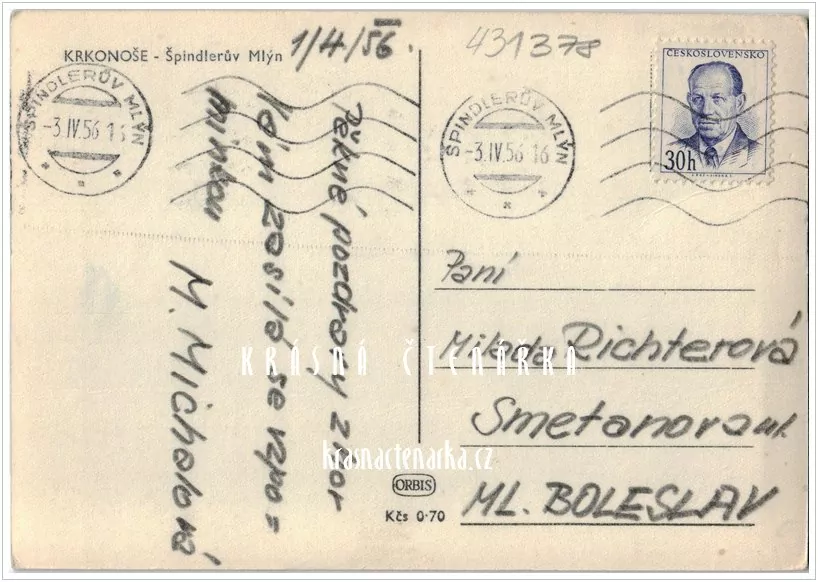 KRKONOŠE - Špindlerův Mlýn
1/4/56.
431378
ŠPINDLERŮV MLÝN
-3.IV.56 16
ŠPINDLERŮV MLÝN
-3.IV.56 16
ČESKOSLOVENSKO
30h
Pěkné pozdravy z hor
Vám zasílá se vzpo=
mínkou
M. Michalová
Paní
Milada Richterová
Smetanova ul.
ML. BOLESLAV
KRÁSNÁ ČTENÁŘKA
krasnactenarka.cz
ORBIS
Kčs 0·70